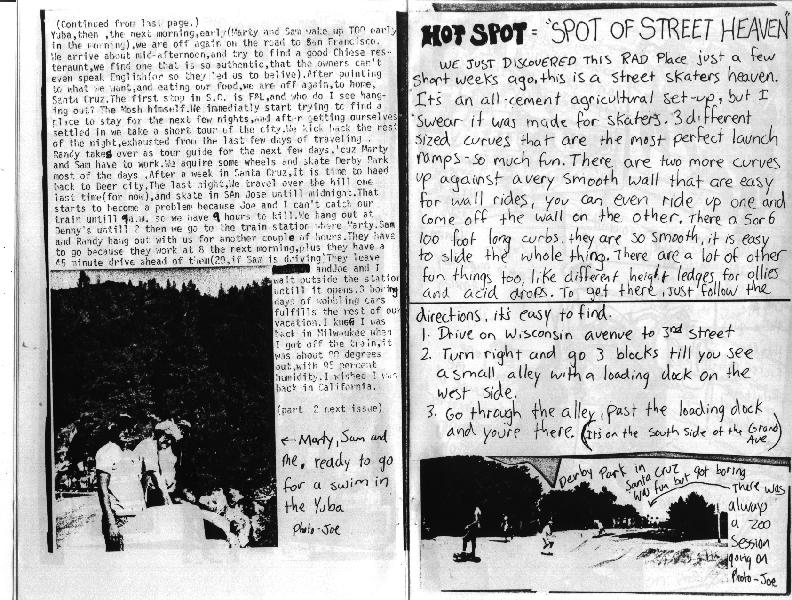 (Continued from last page.)
Yuba,then ,the next morning,early(Marty and Sam wake up TOO early
in the morning),we are off again on the road to San Francisco.
We arrive about mid-afternoon, and try to find a good Chiese res-
teraunt,we find one that is so authentic,that the owners can't
even speak English(or so they led us to belive).After pointing
to what we want,and eating our food,we are off again,to home,
Santa Cruz.The first stop in S.C. is FBL,and who do I see hang-
ing out? The Mosh himself.We immediatly start trying to find a
place to stay for the next few nights,and after getting ourselves
settled in we take a short tour of the city.We kick back the rest
of the night,exhausted from the last few days of traveling .
Randy takes over as tour guide for the next few days,'cuz Marty
and Sam have to work.We aquire some wheels and skate Derby Park
most of the days .After a week in Santa Cruz,It is time to head
back to Beer city,The last night,We travel over the hill one
last time(for now),and skate in SAn Jose untill midnight.That
starts to become a problem because Joe and I can't catch our
train untill 9a.m. so we have 9 hours to kill.We hang out at
Denny's untill 2 then we go to the train station where Marty,Sam
and Randy hang out with us for another couple of hours.They have
to go because they work at 8 the next morning,plus they have a
45 minute drive ahead of them(20,if Sam is driving)They leave
andJoe and I
wait outside the station
untill it opens.3 boring
days of wobbling cars
fulfills the rest of our
vacation.I knew I was
back in Milwaukee when
I got off the train,it
was about 90 degrees
out,with 95 percent
humidity.I wished I was
back in California.
(part 2 next issue)
← Marty, Sam and
me, ready to go
for a swim in
the Yuba
Photo-Joe
HOT SPOT = "SPOT OF STREET HEAVEN"
WE JUST DISCOVERED THIS RAD Place just a few
short weeks ago, this is a street skaters heaven.
It's an all-cement agricultural set-up, but I
swear it was made for skaters. 3 different
sized curves that are the most perfect launch
ramps - so much fun. There are two more curves
up against a very smooth wall that are easy
for wall rides, you can even ride up one and
come off the wall on the other. There a 5 or 6
100 foot long curbs, they are so smooth, it is easy
to slide the whole thing. There are a lot of other
fun things too, like different height ledges for ollies
and acid drops. To get there, just follow the
directions, it's easy to find.
1. Drive on Wisconsin avenue to 3rd street
2. Turn right and go 3 blocks till you see
a small alley with a loading dock on the
west side.
3. Go through the alley, past the loading dock
and you're there. (It's on the South side of the Grand
Ave.)
Derby Park in
Santa Cruz
was fun but got boring
There was
always
a zoo
Session
going on
Photo-Joe